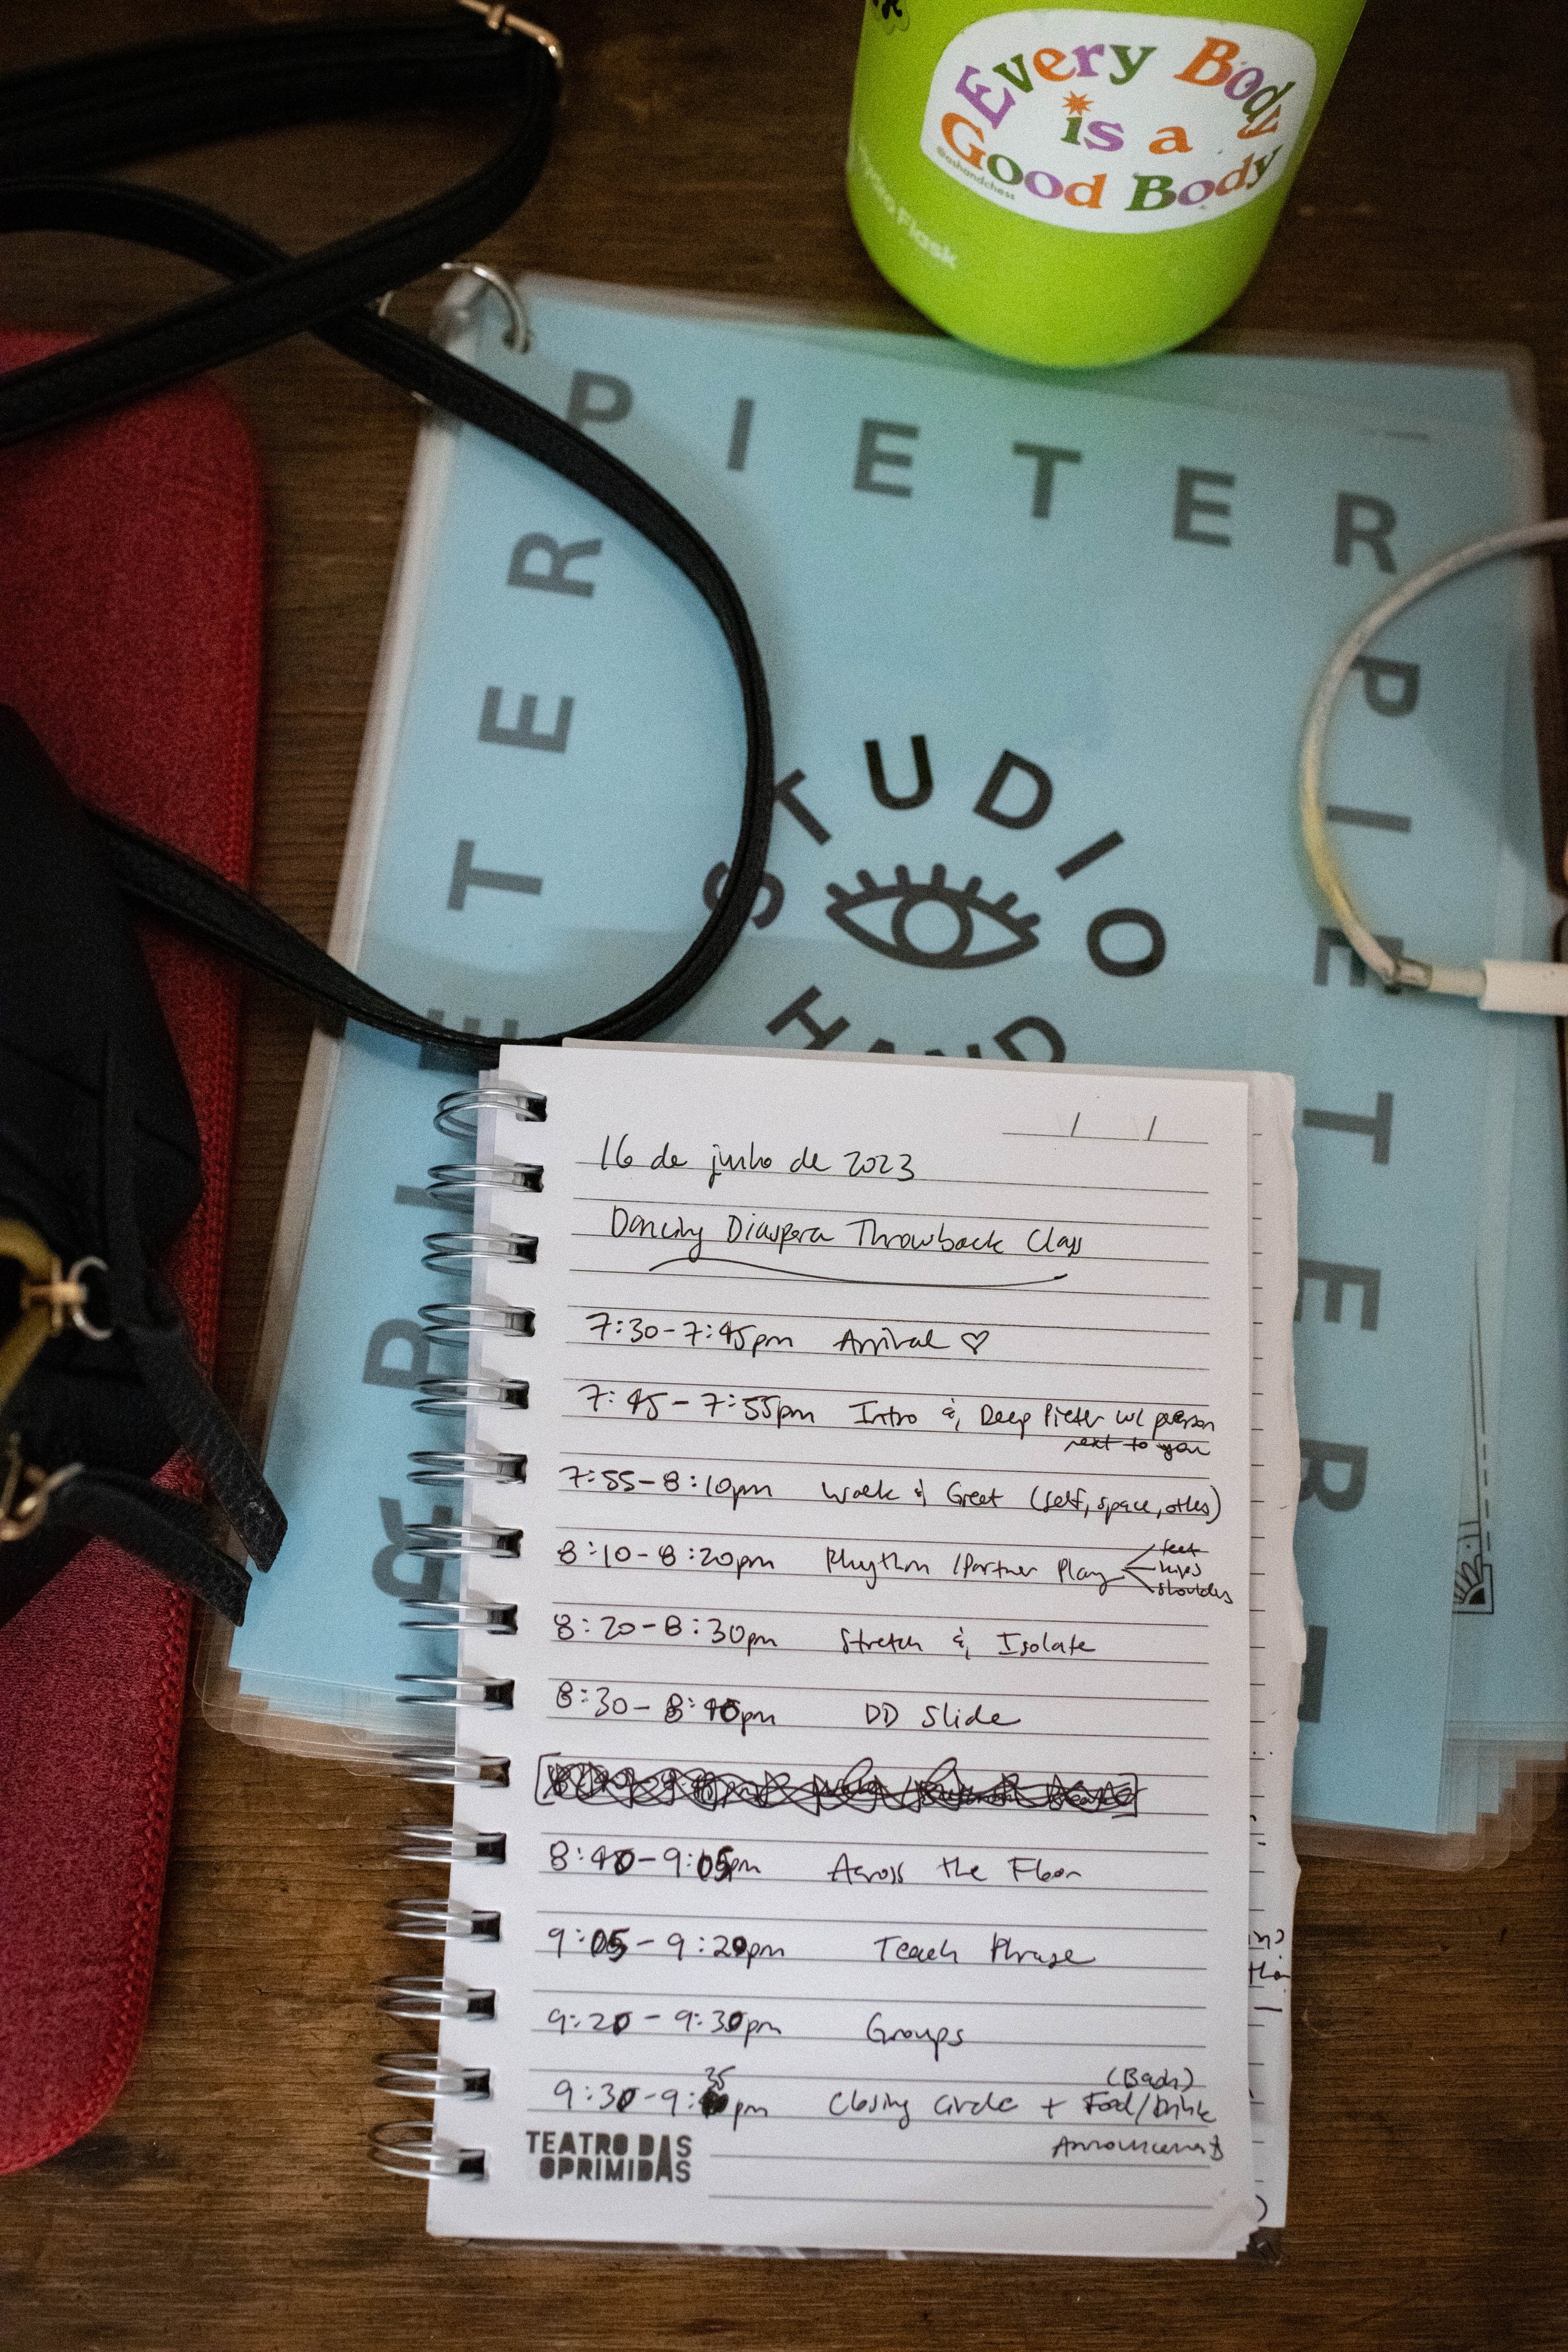 Every Body
is a
Good Body
@ashandchess
Hydro Flask
PIETER
PIETER
PIETER
STUDIO
HAND
16 de junho de 2023
Dancing Diaspora Throwback Class
7:30-7:45pm Arrival ♡
7:45-7:55pm Intro & Deep Pieter w/ person
next to you
7:55-8:10pm Walk & Greet (self, space, others)
8:10-8:20pm Rhythm /Partner Play
feet
hips
shoulders
8:20-8:30pm Stretch & Isolate
8:30-8:40pm DD Slide
8:40-9:05pm Across the Floor
9:05-9:20pm Teach Phrase
9:20-9:30pm Groups
9:30-9:35pm Closing Circle + Food/Drink
Announcements
TEATRO DAS
OPRIMIDAS